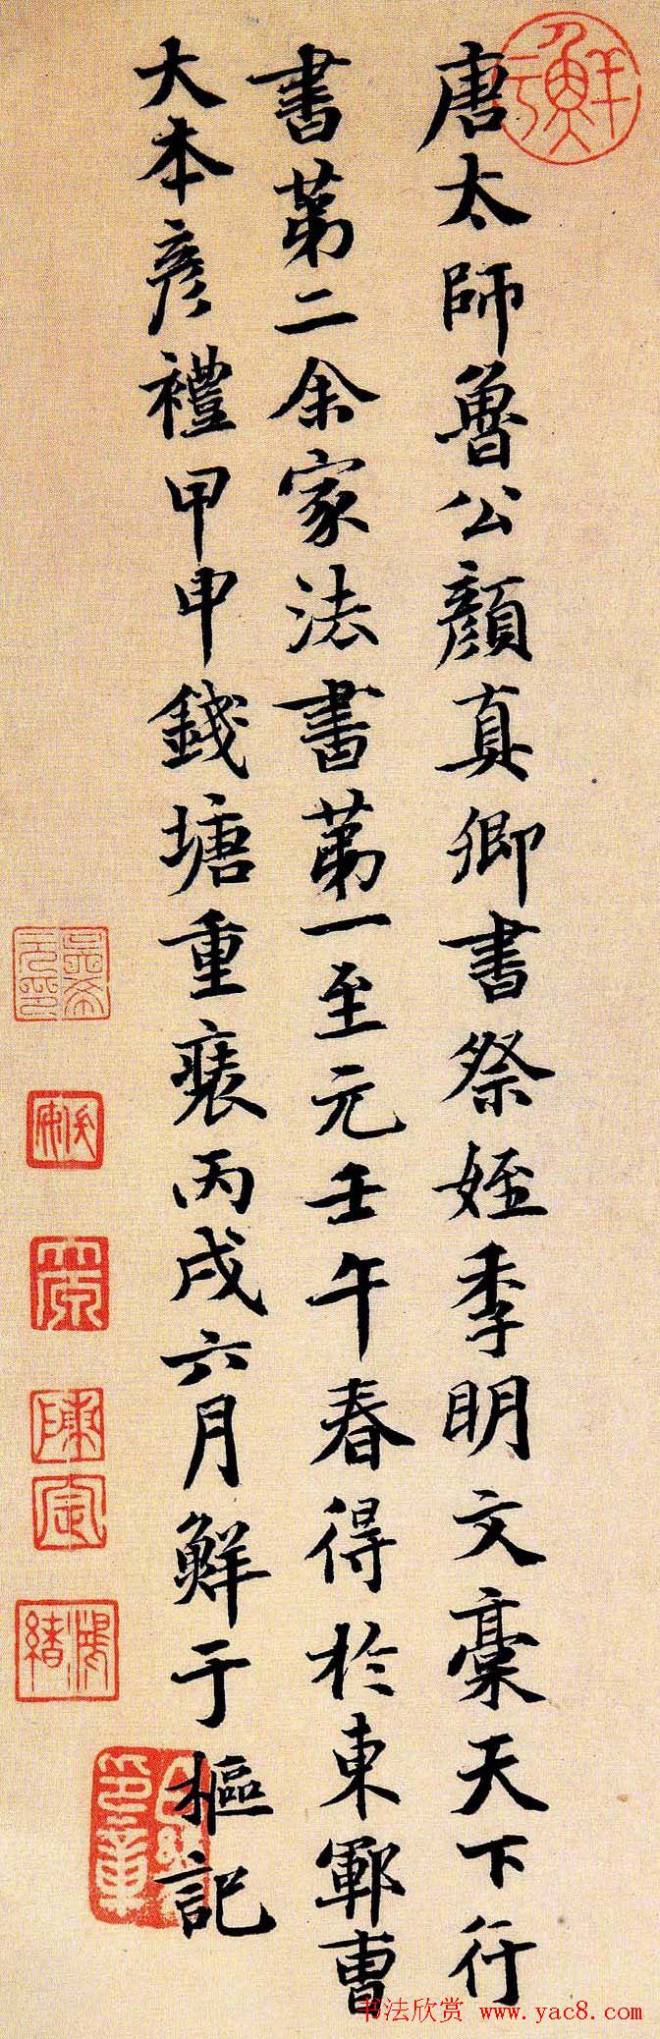 唐太師魯公顔真卿書祭姪季明文稾天下行
書苐二余家法書苐一至元壬午春得於東鄆曺
大本彦禮甲申錢塘重裝丙戌六月鮮于樞記
书法欣赏 www.yac8.com